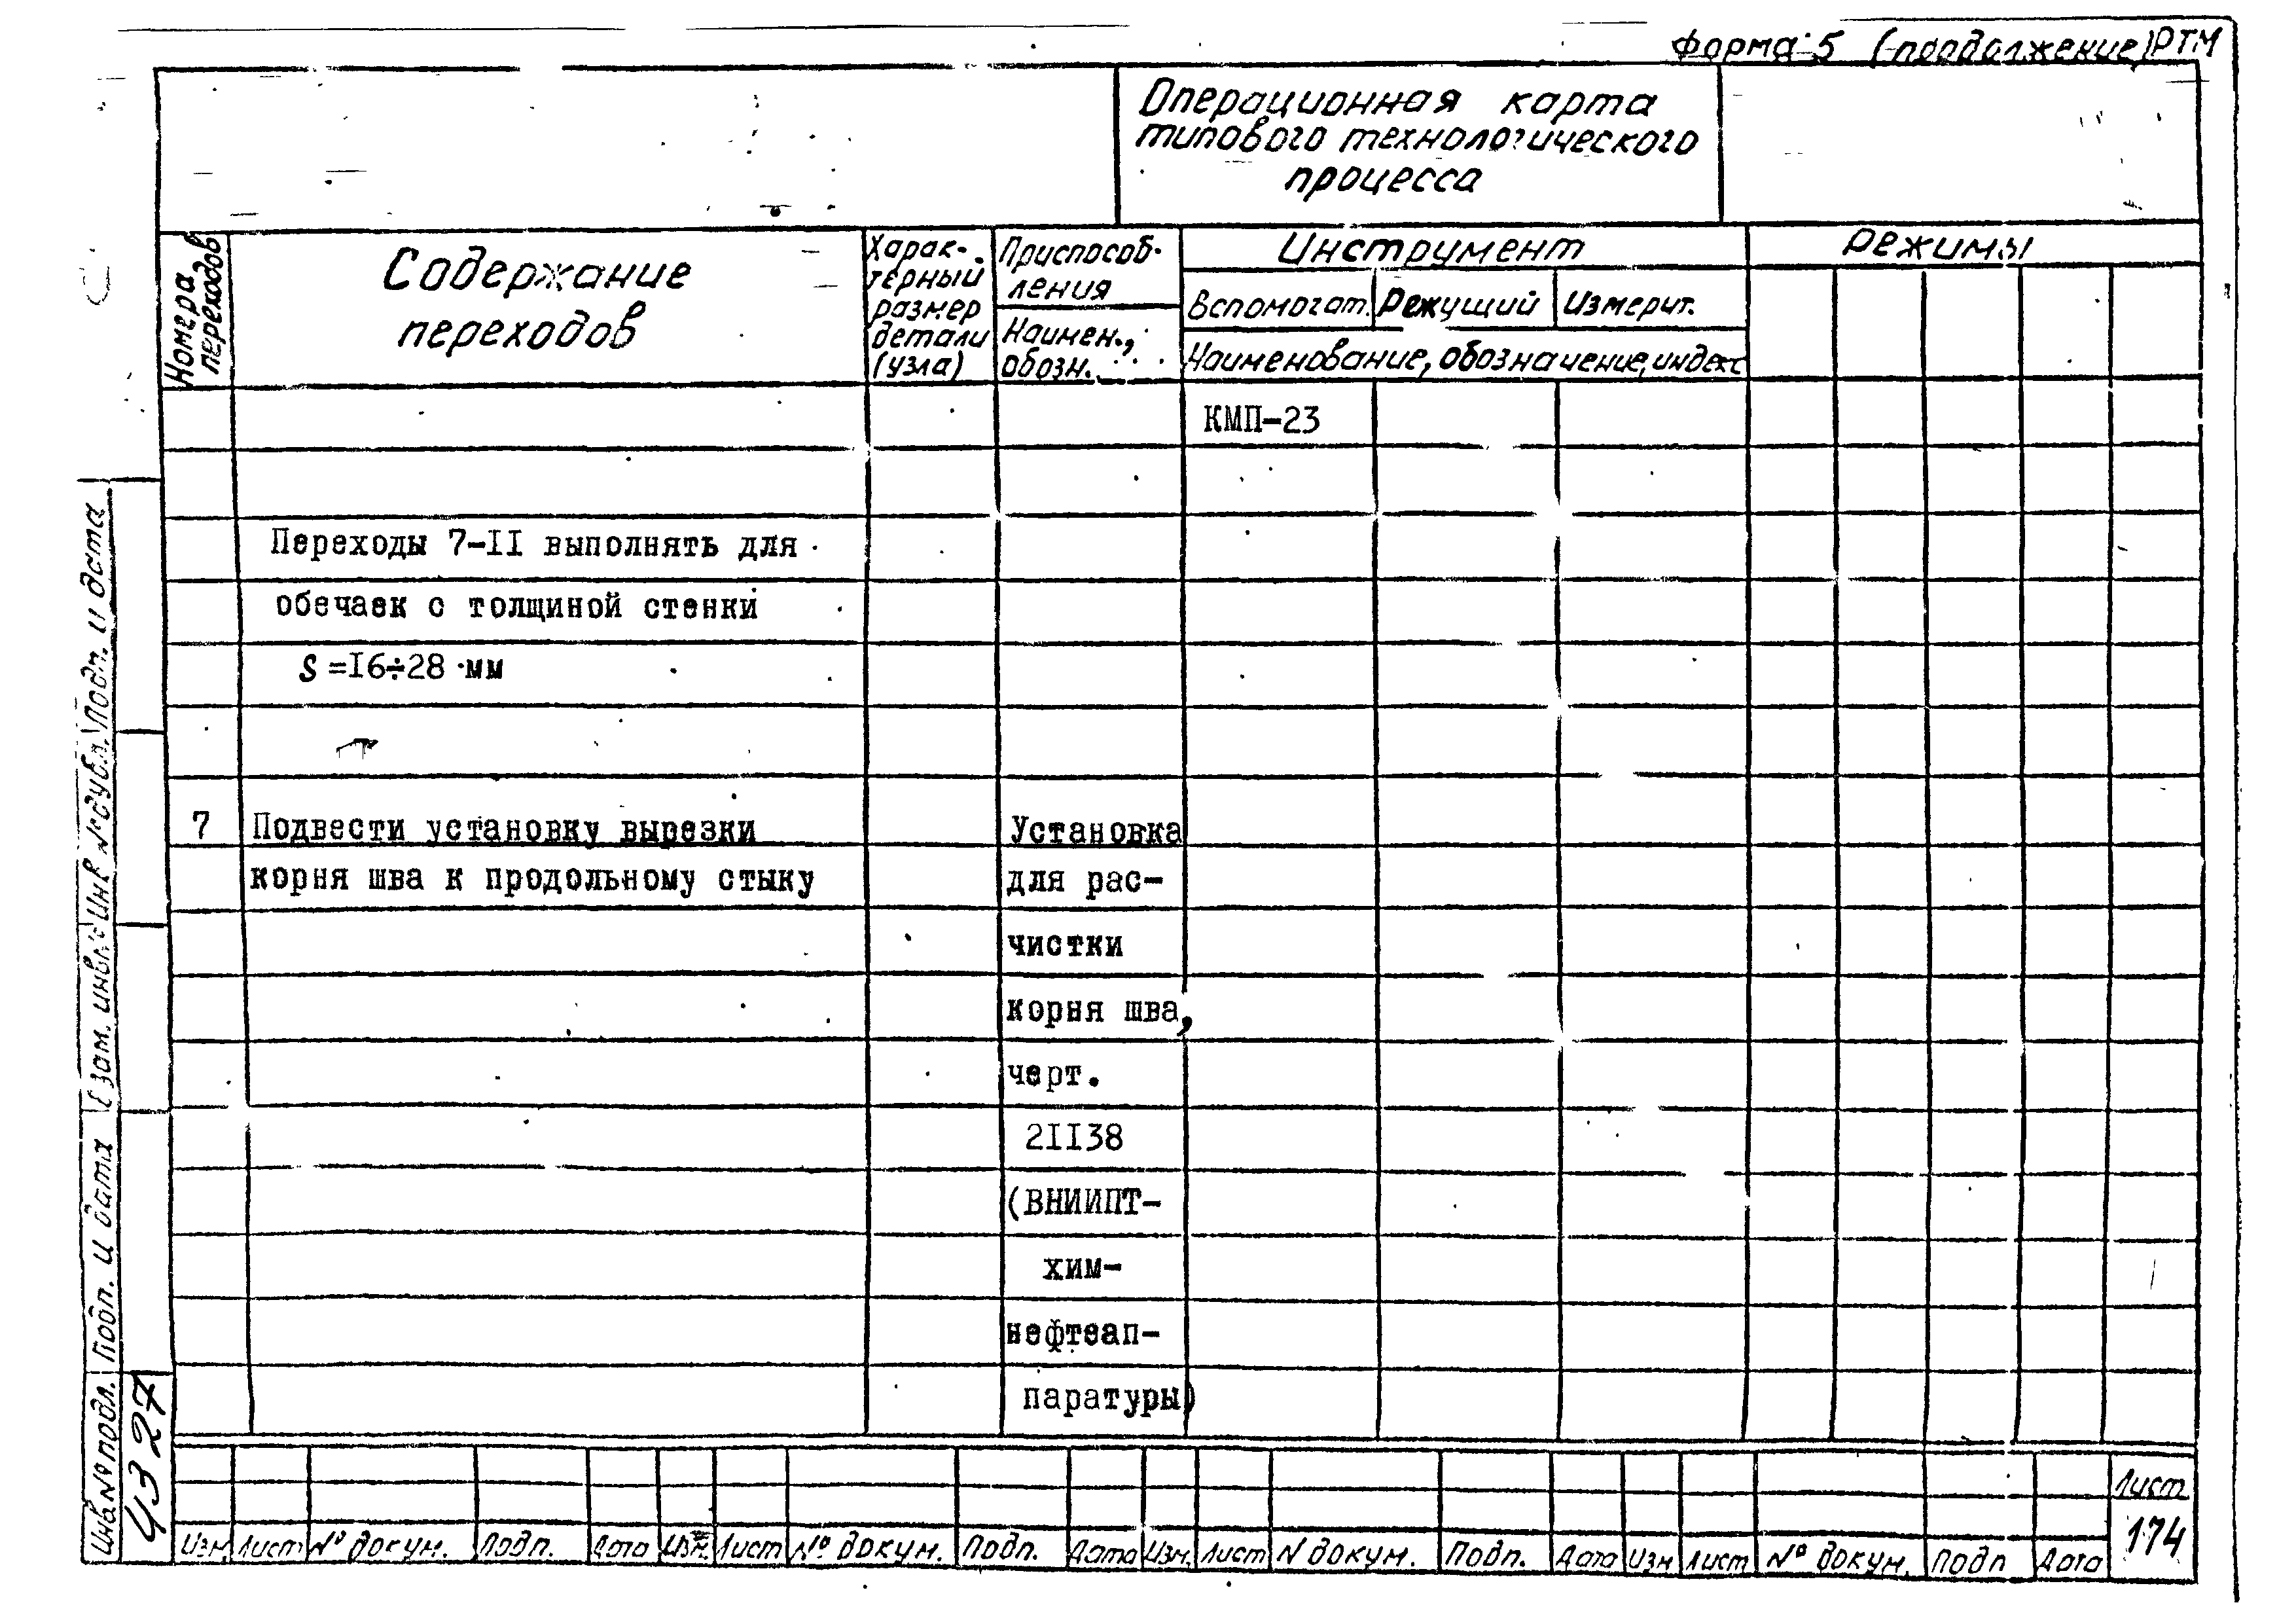 Форма 5 (продолжение) РТМ
Операционная карта
типового технологического
процесса
Номера
переходов
Содержание
переходов
Харак-
терный
размер
детали
(узла)
Приспособ-
ления
Наимен.,
обозн.
Инструмент
Вспомогат. Режущий Измерит.
Наименование, обозначение, индекс
Режимы
КМП-23
Переходы 7-II выполнять для
обечаек с толщиной стенки
S =I6÷28 мм
7 Подвести установку вырезки
корня шва к продольному стыку
Установка
для рас-
чистки
корня шва,
черт.
2II38
(ВНИИПТ-
хим-
нефтеап-
паратуры)
Инв.№ подл. Подп. и дата Взам. инв.№ Инв № дубл. Подп. и дата
4327
Изм Лист № докум. Подп. Дата Изм. Лист № докум. Подп. Дата Изм. Лист N докум. Подп. Дата Изм Лист № докум. Подп Дата
Лист
174